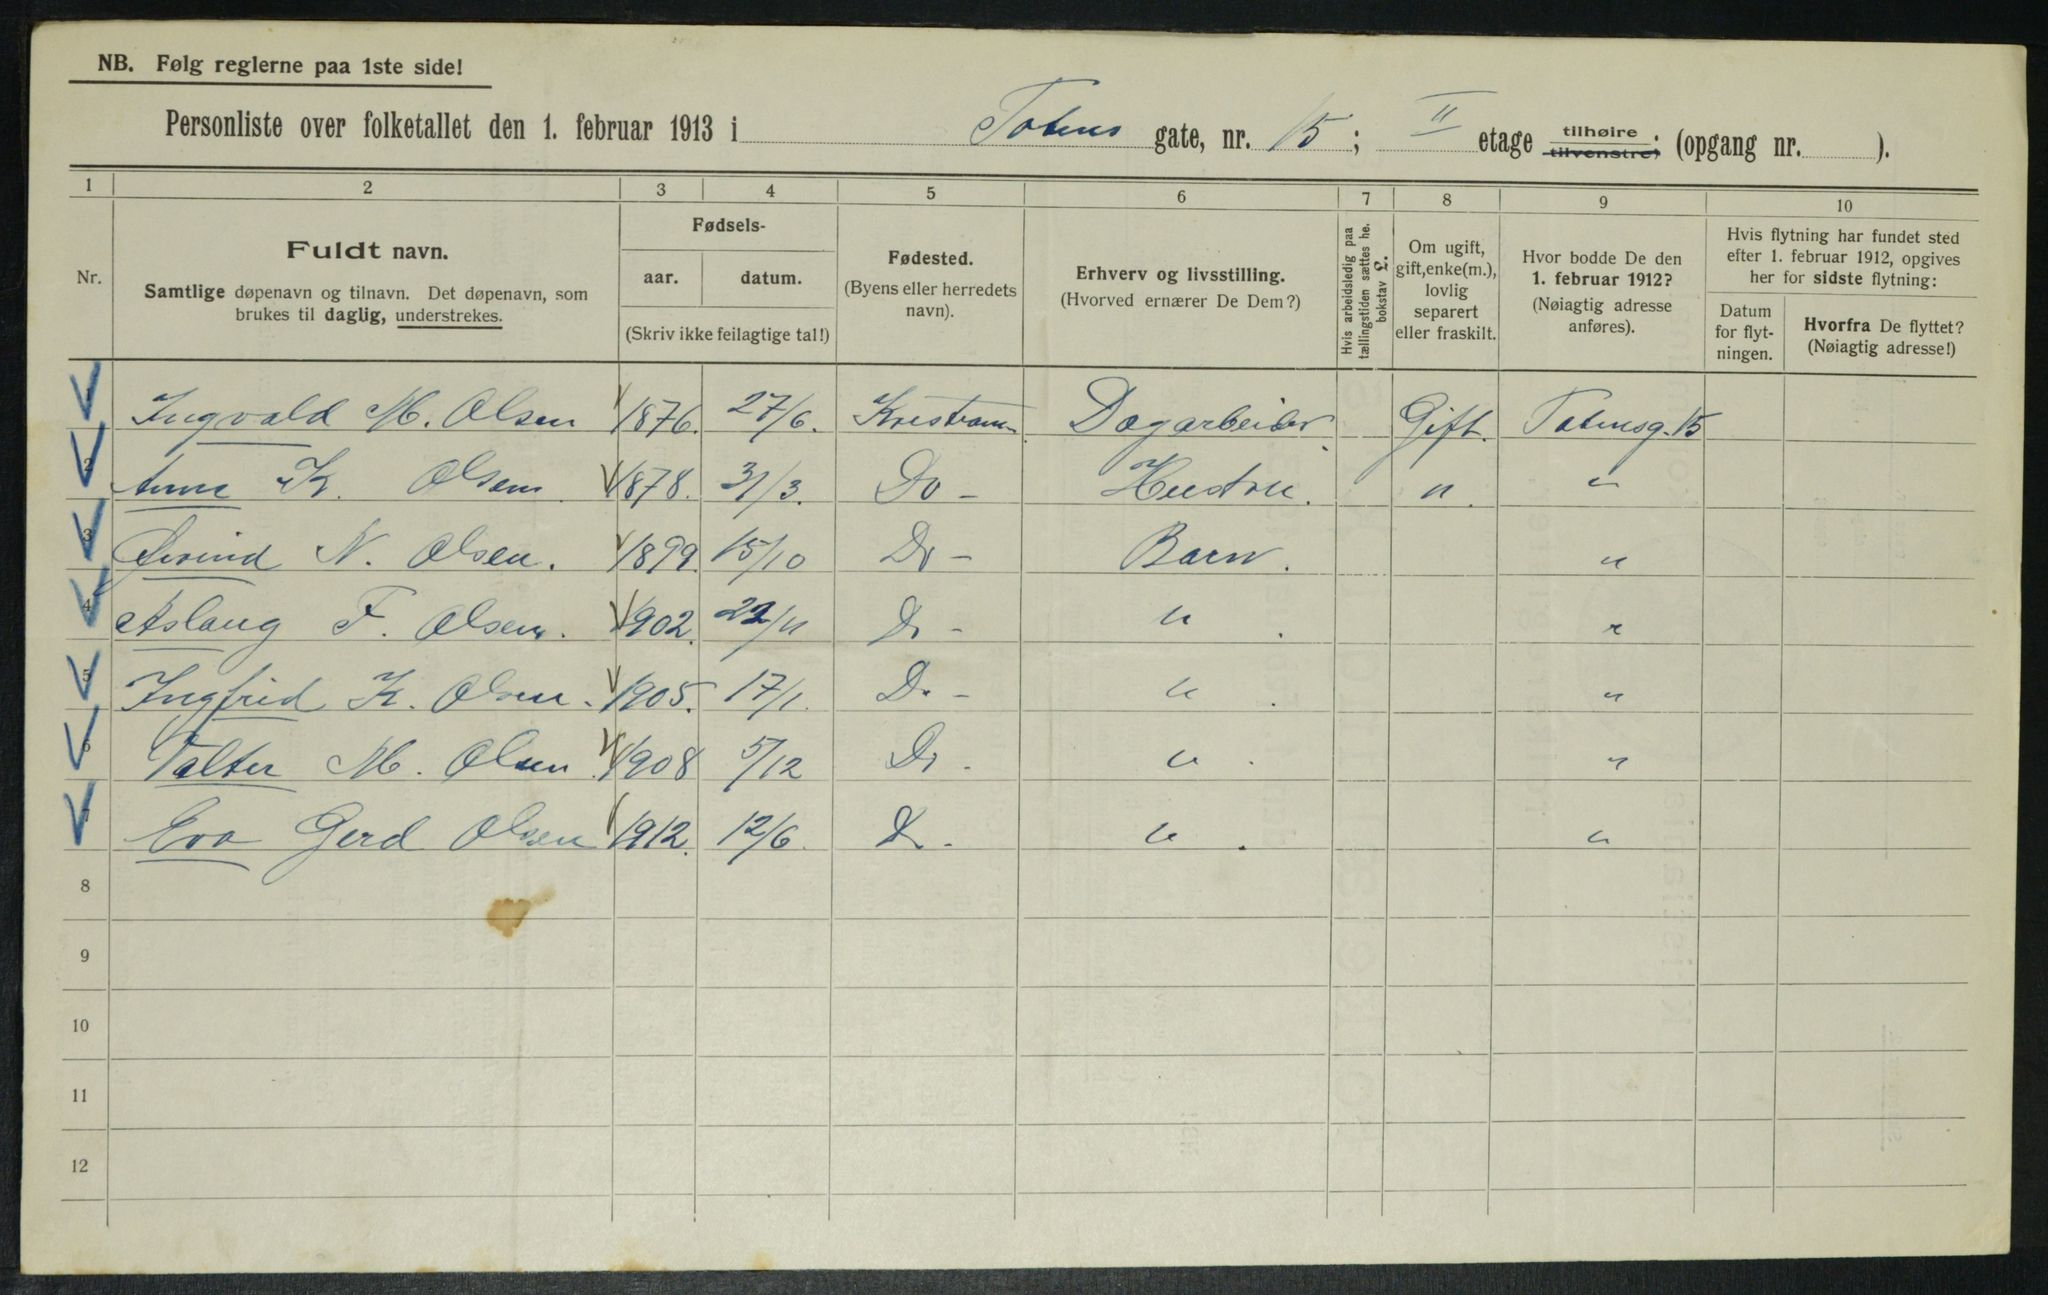 NB. Følg reglerne paa 1ste side!
Personliste over folketallet den 1. februar 1913 i Totens gate, nr. 15; II etage tilhøire tilvenstre; (opgang nr. ).
1 2 3 4 5 6 7 8 9 10
Nr.
Fuldt navn.
Samtlige døpenavn og tilnavn. Det døpenavn, som
brukes til daglig, understrekes.
Fødsels-
aar. datum.
(Skriv ikke feilagtige tal!)
Fødested.
(Byens eller herredets
navn).
Erhverv og livsstilling.
(Hvorved ernærer De Dem?)
Hvis arbeidsledig paa
tællingstiden sættes he.
bokstav £.
Om ugift,
gift, enke(m.),
lovlig
separert
eller fraskilt.
Hvor bodde De den
1. februar 1912?
(Nøiagtig adresse
anføres).
Hvis flytning har fundet sted
efter 1. februar 1912, opgives
her for sidste flytning:
Datum
for flyt-
ningen.
Hvorfra De flyttet?
(Nøiagtig adresse!)
1 Ingvald M. Olsen 1876. 27/6. Kristiania Dagarbeider Gift. Totensg. 15
2 Anna K. Olsen 1878. 31/3. Do - Hustru. " "
3 Øivind N. Olsen. 1899. 15/10 Do - Barn. "
4 Aslaug F. Olsen. 1902. 22/11 Do - " . "
5 Ingfrid K. Olsen. 1905. 17/1. Do - " . "
6 Valter M. Olsen 1908 5/12 Do - " . "
7 Eva Gerd Olsen 1912. 12/6. Do - " . "
8
9
10
11
12